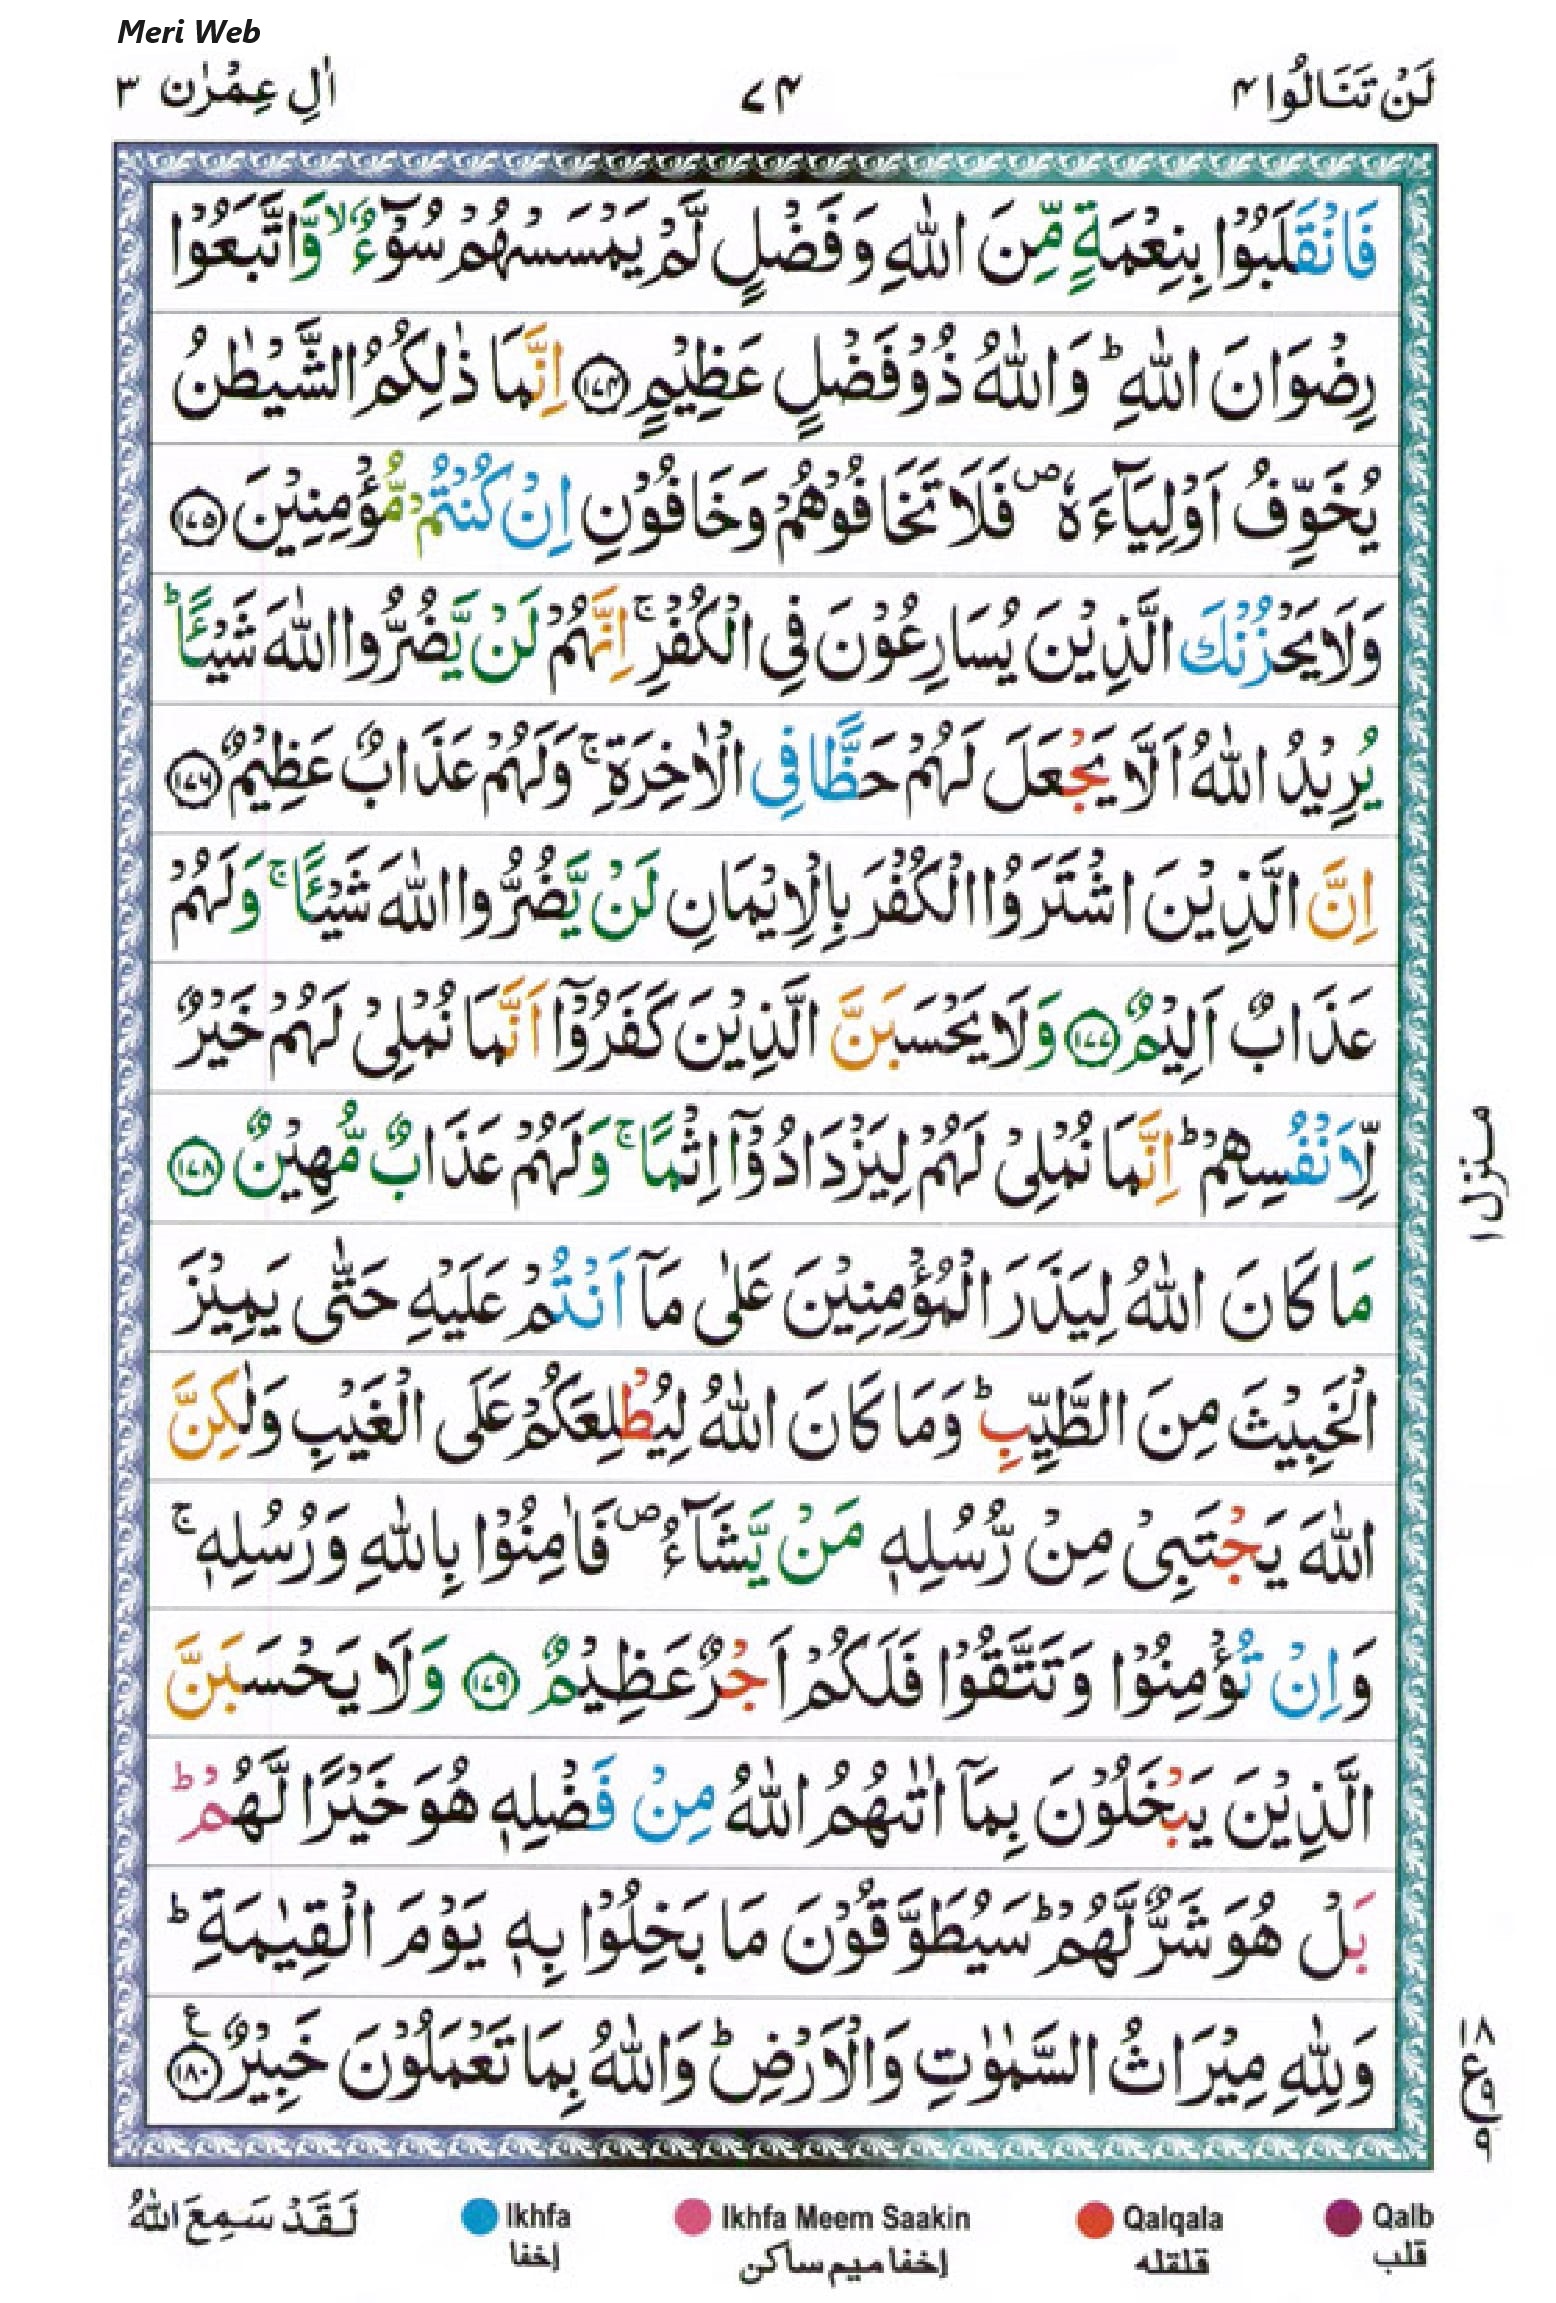 Meri Web
لَنْ تَنَالُوا ٤ ٧٤ اٰلِ عِمْرٰن ٣
فَانْقَلَبُوْا بِنِعْمَةٍ مِّنَ اللّٰهِ وَفَضْلٍ لَّمْ يَمْسَسْهُمْ سُوْٓءٌ ۙ وَّاتَّبَعُوْا
رِضْوَانَ اللّٰهِ ؕ وَاللّٰهُ ذُوْ فَضْلٍ عَظِيْمٍ ﴿۱۷۴﴾ اِنَّمَا ذٰلِكُمُ الشَّيْطٰنُ
يُخَوِّفُ اَوْلِيَآءَهٗ ۪ فَلَا تَخَافُوْهُمْ وَخَافُوْنِ اِنْ كُنْتُمْ مُّؤْمِنِيْنَ ﴿۱۷۵﴾
وَلَا يَحْزُنْكَ الَّذِيْنَ يُسَارِعُوْنَ فِى الْكُفْرِ ۚ اِنَّهُمْ لَنْ يَّضُرُّوا اللّٰهَ شَيْـًٔا ؕ
يُرِيْدُ اللّٰهُ اَلَّا يَجْعَلَ لَهُمْ حَظًّا فِى الْاٰخِرَةِ ۚ وَلَهُمْ عَذَابٌ عَظِيْمٌ ﴿۱۷۶﴾
اِنَّ الَّذِيْنَ اشْتَرَوُا الْكُفْرَ بِالْاِيْمَانِ لَنْ يَّضُرُّوا اللّٰهَ شَيْـًٔا ۚ وَلَهُمْ
عَذَابٌ اَلِيْمٌ ﴿۱۷۷﴾ وَلَا يَحْسَبَنَّ الَّذِيْنَ كَفَرُوْۤا اَنَّمَا نُمْلِىْ لَهُمْ خَيْرٌ
لِّاَنْفُسِهِمْ ؕ اِنَّمَا نُمْلِىْ لَهُمْ لِيَزْدَادُوْۤا اِثْمًا ۚ وَلَهُمْ عَذَابٌ مُّهِيْنٌ ﴿۱۷۸﴾
مَا كَانَ اللّٰهُ لِيَذَرَ الْمُؤْمِنِيْنَ عَلٰى مَاۤ اَنْتُمْ عَلَيْهِ حَتّٰى يَمِيْزَ
الْخَبِيْثَ مِنَ الطَّيِّبِ ؕ وَمَا كَانَ اللّٰهُ لِيُطْلِعَكُمْ عَلَى الْغَيْبِ وَلٰكِنَّ
اللّٰهَ يَجْتَبِىْ مِنْ رُّسُلِهٖ مَنْ يَّشَآءُ ۪ فَاٰمِنُوْا بِاللّٰهِ وَرُسُلِهٖ ۚ
وَاِنْ تُؤْمِنُوْا وَتَتَّقُوْا فَلَكُمْ اَجْرٌ عَظِيْمٌ ﴿۱۷۹﴾ وَلَا يَحْسَبَنَّ
الَّذِيْنَ يَبْخَلُوْنَ بِمَاۤ اٰتٰىهُمُ اللّٰهُ مِنْ فَضْلِهٖ هُوَ خَيْرًا لَّهُمْ ؕ
بَلْ هُوَ شَرٌّ لَّهُمْ ؕ سَيُطَوَّقُوْنَ مَا بَخِلُوْا بِهٖ يَوْمَ الْقِيٰمَةِ ؕ
وَلِلّٰهِ مِيْرَاثُ السَّمٰوٰتِ وَالْاَرْضِ ؕ وَاللّٰهُ بِمَا تَعْمَلُوْنَ خَبِيْرٌ ﴿۱۸۰﴾ ع
منزل ١
١٨
ع
٩
٩
لَقَدْ سَمِعَ اللّٰهُ
Ikhfa
إخفا
Ikhfa Meem Saakin
إخفا ميم ساكن
Qalqala
قلقله
Qalb
قلب